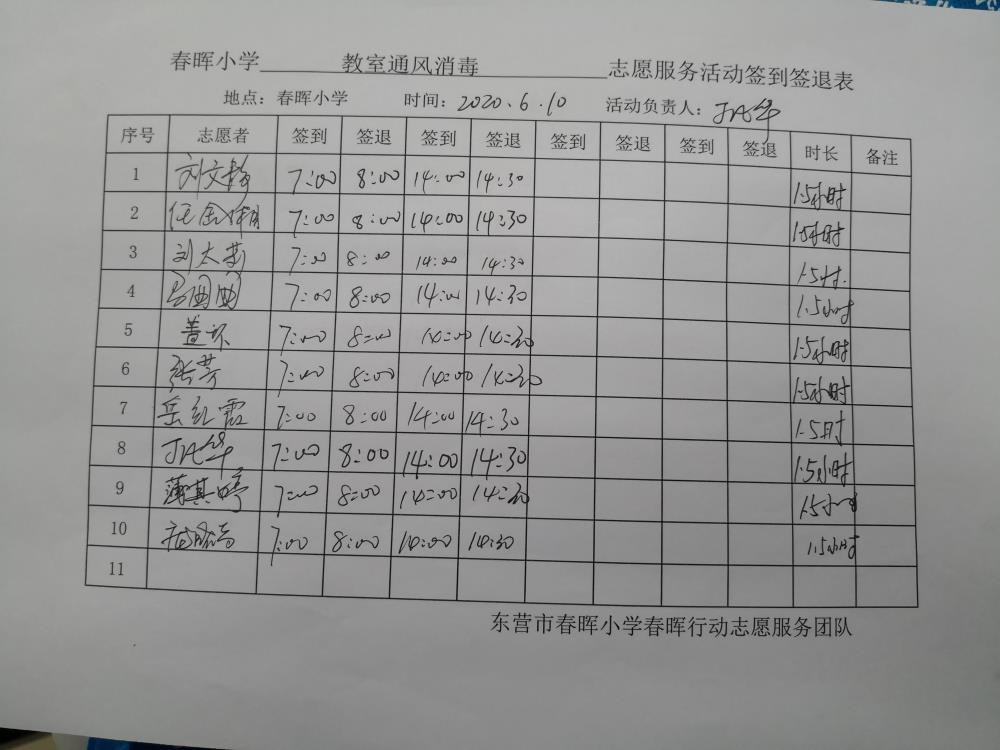 春晖小学 教室通风消毒 志愿服务活动签到签退表
地点：春晖小学 时间：2020.6.10 活动负责人：
序号 志愿者 签到 签退 签到 签退 签到 签退 签到 签退 时长 备注
1 7:00 8:00 14:00 14:30 1.5小时
2 7:00 8:00 14:00 14:30 1.5小时
3 7:00 8:00 14:00 14:30 1.5时.
4 7:00 8:00 14:00 14:30 1.5小时
5 7:00 8:00 14:00 14:30 1.5小时
6 张芳 7:00 8:00 14:00 14:30 1.5小时
7 岳红霞 7:00 8:00 14:00 14:30 1.5时
8 7:00 8:00 14:00 14:30 1.5小时
9 薄其婷 7:00 8:00 14:00 14:30 1.5小时
10 7:00 8:00 14:00 14:30 1.5小时
11
东营市春晖小学春晖行动志愿服务团队